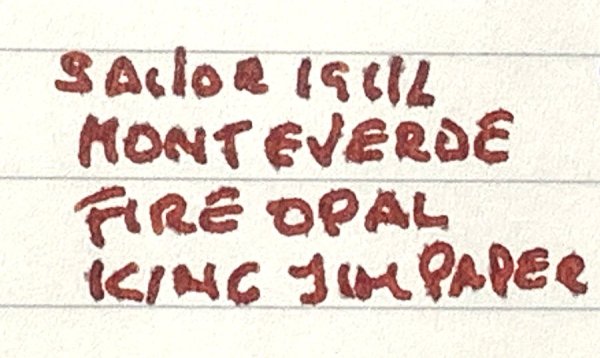 SAILOR 1911L
MONTEVERDE
FIRE OPAL
KING JIM PAPER